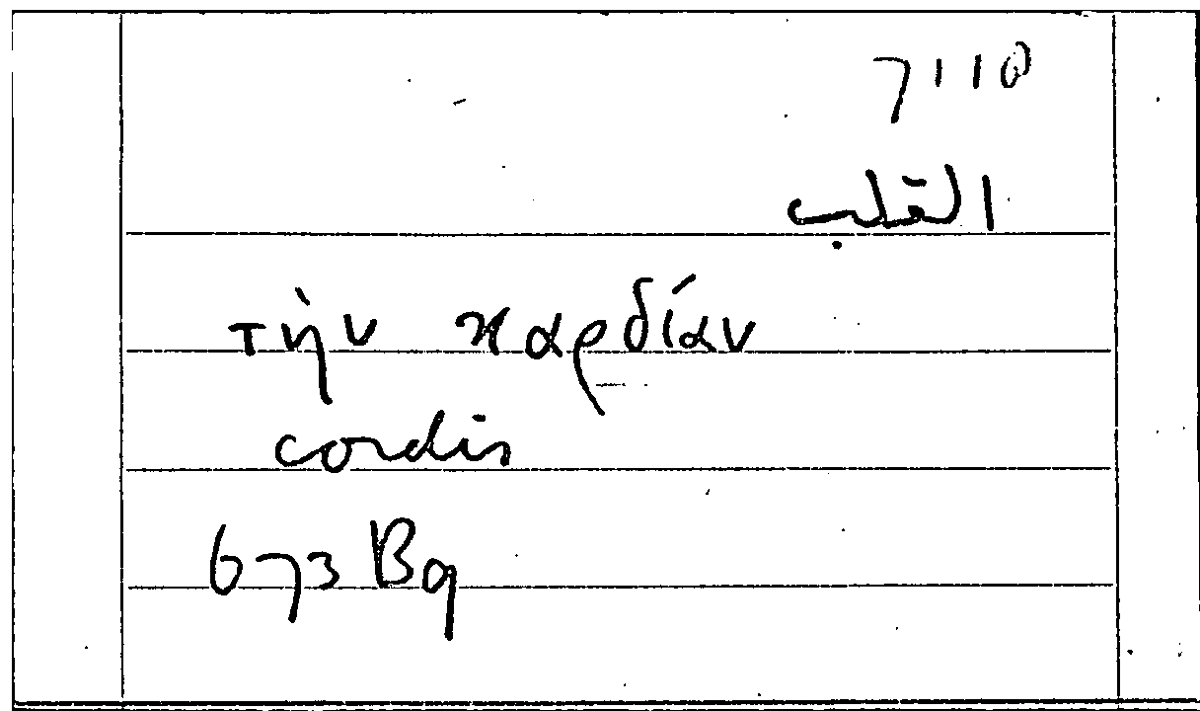 7110
القلب
τὴν καρδίαν
cordis
673 B9